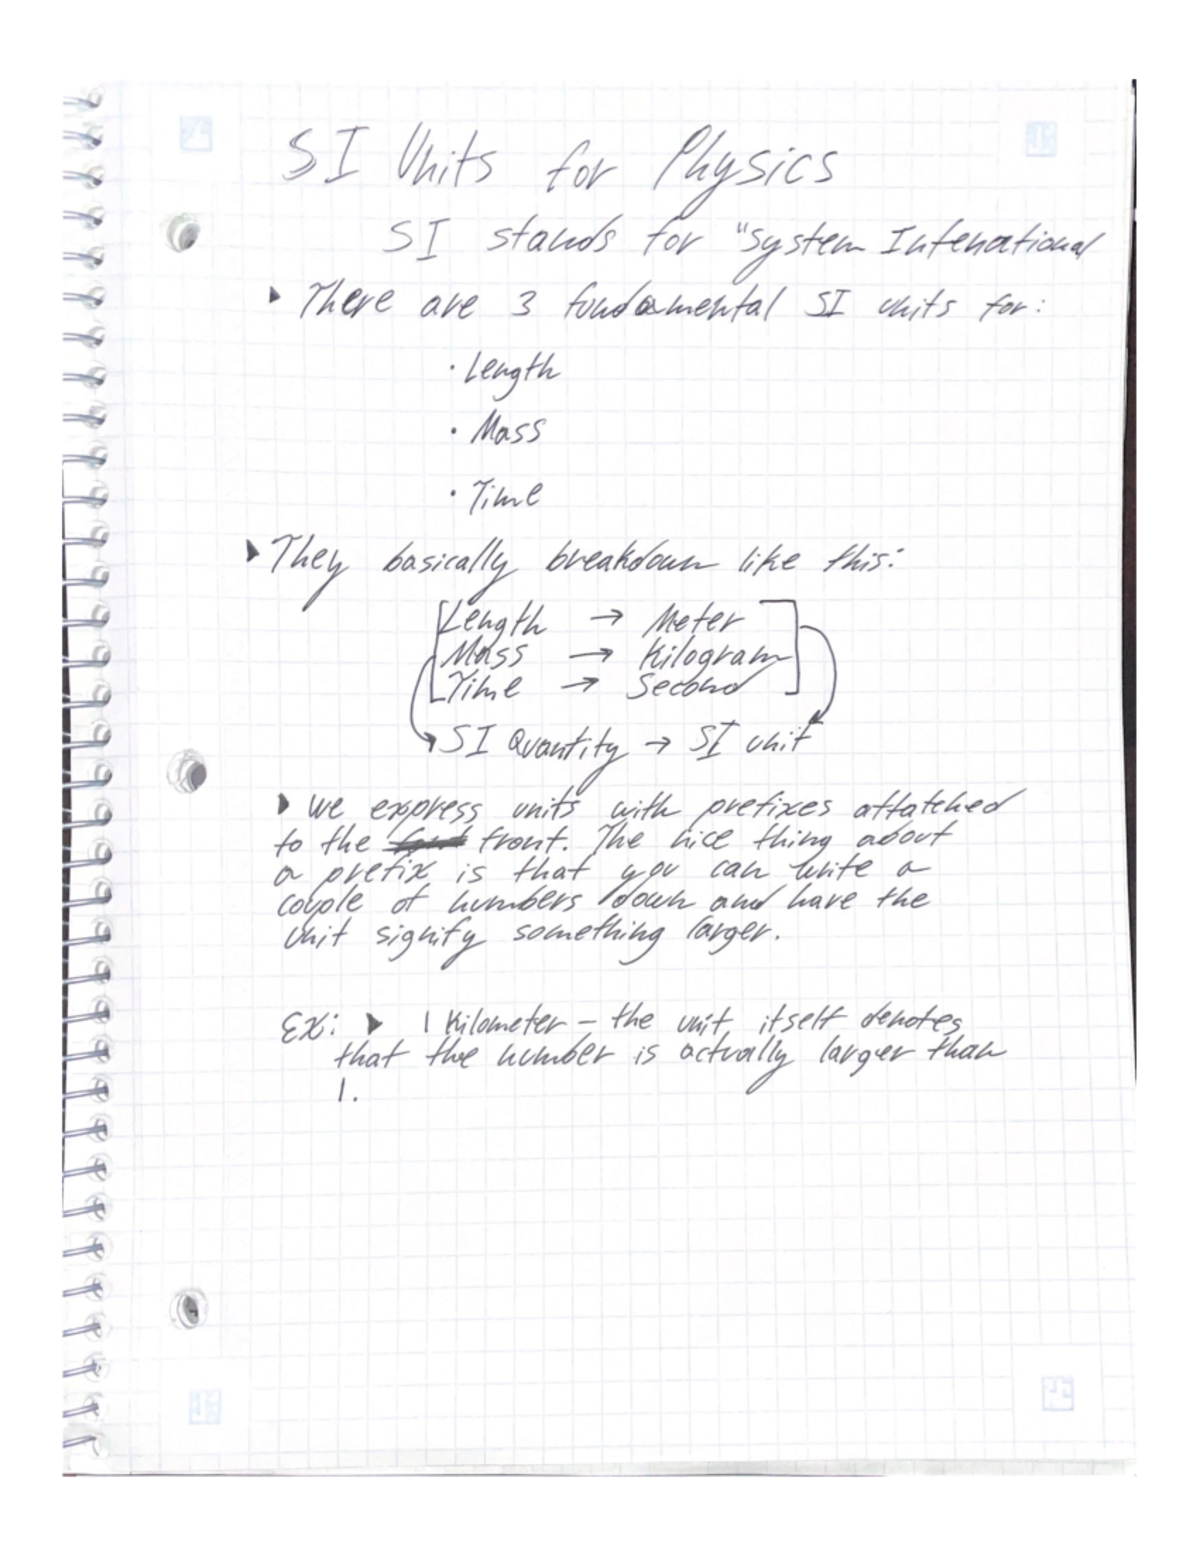 SI Units for Physics
SI stands for "System Intenational
▸ There are 3 fundamental SI units for:
· Length
· Mass
· Time
▸ They basically breakdown like this:
Length → Meter
Mass → Kilogram
Time → Second
SI Quantity → SI unit
▸ We express units with prefixes attatched
to the front. The nice thing about
a prefix is that you can write a
couple of numbers down and have the
unit signify something larger.
EX: ▸ 1 Kilometer - the unit itself denotes
that the number is actually larger than
1.